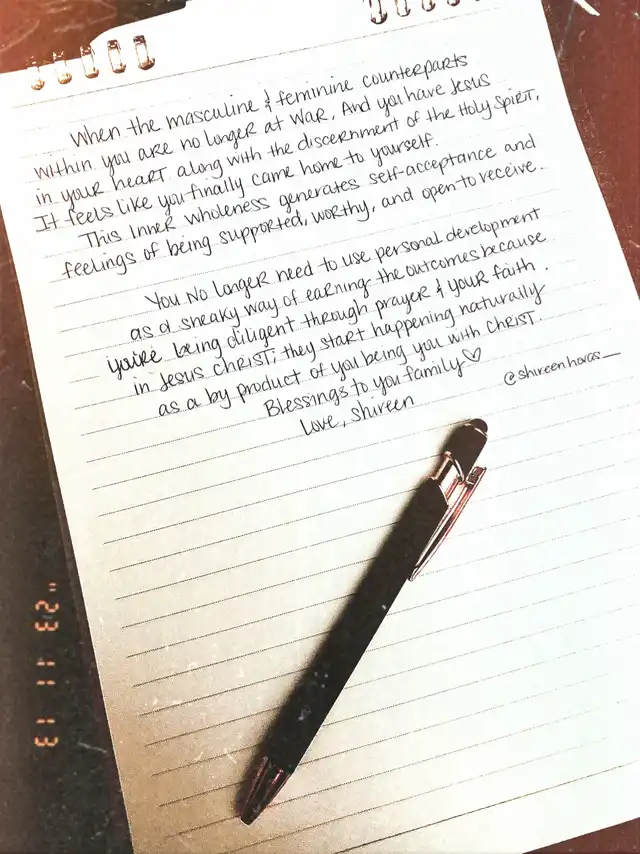 When the masculine & feminine counterparts
within you are no longer at war. And you have Jesus
in your heart along with the discernment of the Holy Spirit,
It feels like you finally came home to yourself.
This inner wholeness generates self-acceptance and
feelings of being supported, worthy, and open to receive.
You no longer need to use personal development
as a sneaky way of earning the outcomes because
you're being diligent through prayer & your faith.
in Jesus Christ; they start happening naturally
as a by product of you being you with Christ
Blessings to you family♡
Love, Shireen
@shireenhoras_
'23 11 13